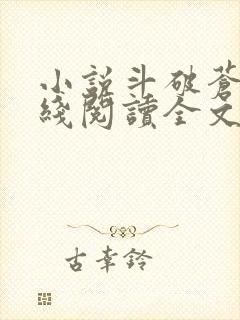 小說斗破蒼
綫閱讀全文
古幸鈴